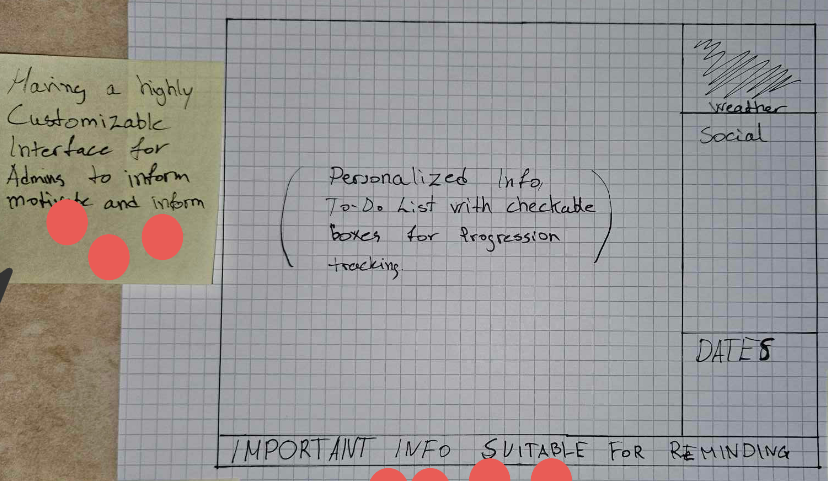 Having a highly
Customizable
Interface for
Admins to inform
motivate and inform
Weather
Social
Personalized Info,
To-Do List with checkable
boxes for Progression
tracking.
DATES
IMPORTANT INFO SUITABLE FOR REMINDING